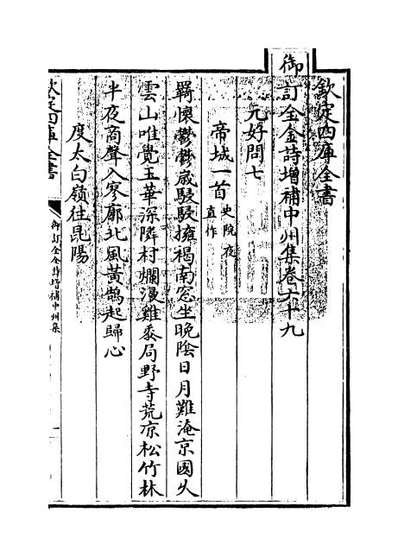 欽定四庫全書
御訂全金詩增補中州集卷六十九
元好問七
帝城一首 史院夜直作
羈懷鬱鬱歲駸駸擁褐南窓坐晚陰日月難淹京國久
雲山唯覺玉華深隣村爛漫雞黍局野寺荒凉松竹林
半夜商聲入寥廓北風黃鵠起歸心
度太白嶺往昆陽
欽定四庫全書
御訂全金詩增補中州集